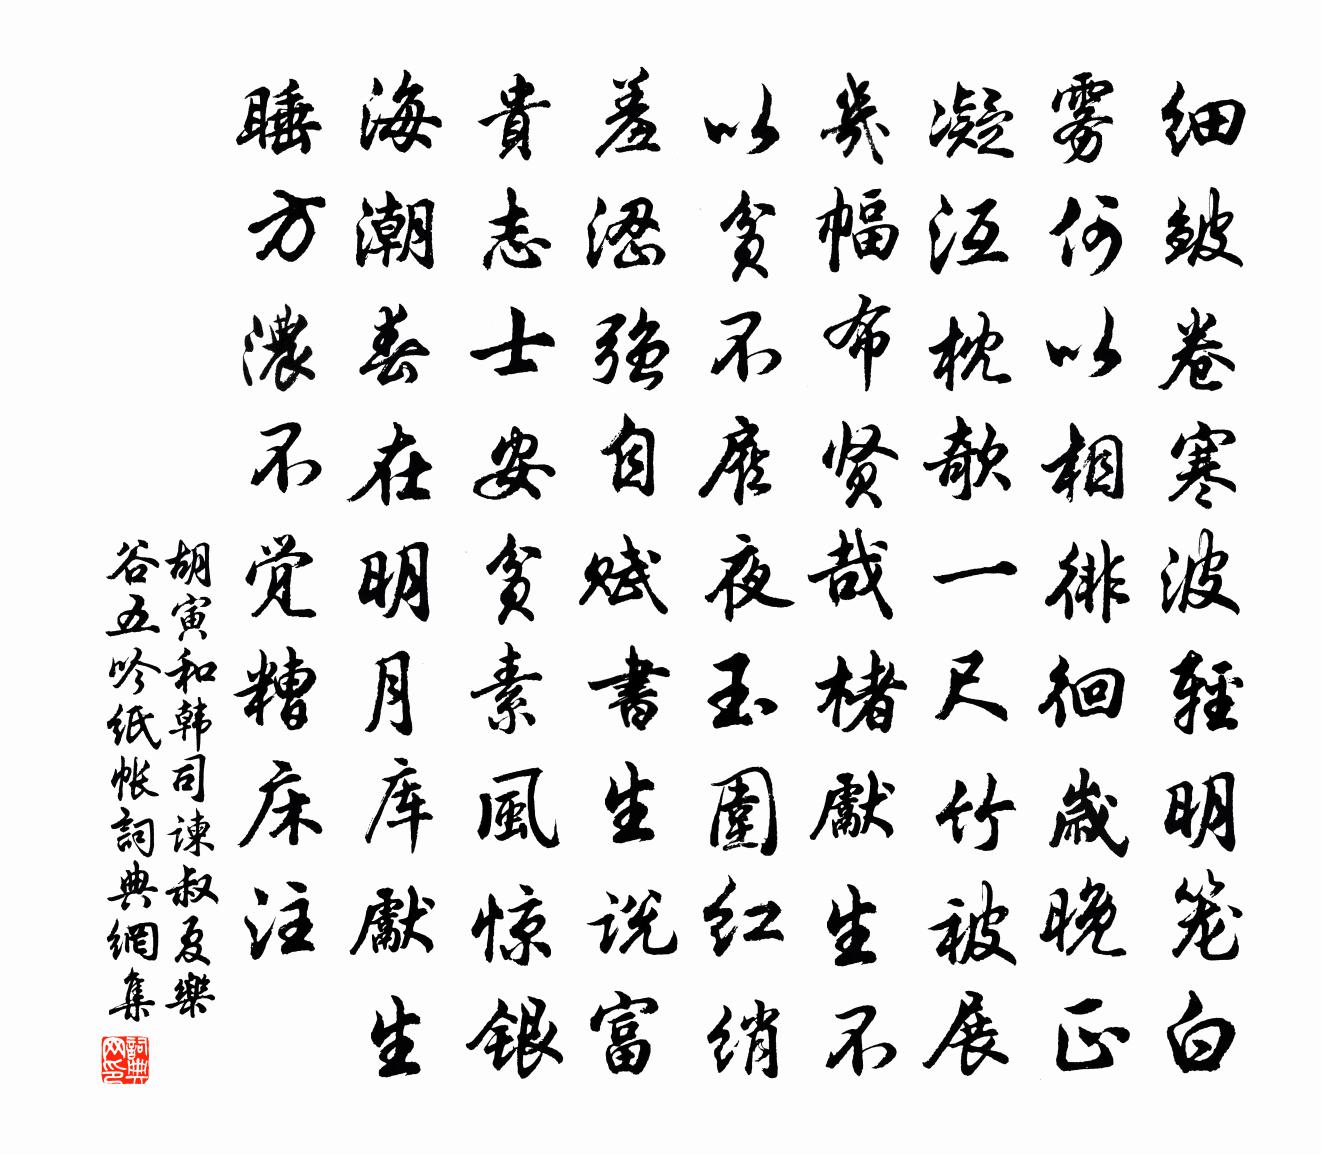 细皱卷寒波轻明笼白
雾何以相徘徊岁晚正
凝沍枕欹一尺竹被展
几幅布贤哉楮献生不
以贫不雇夜玉围红绡
羞涩强自赋书生说富
貴志士安贫素風惊银
海潮春在明月库献生
睡方濃不觉糟床注
胡寅和韩司谏叔夏樂
谷五吟纸帐詞典網集